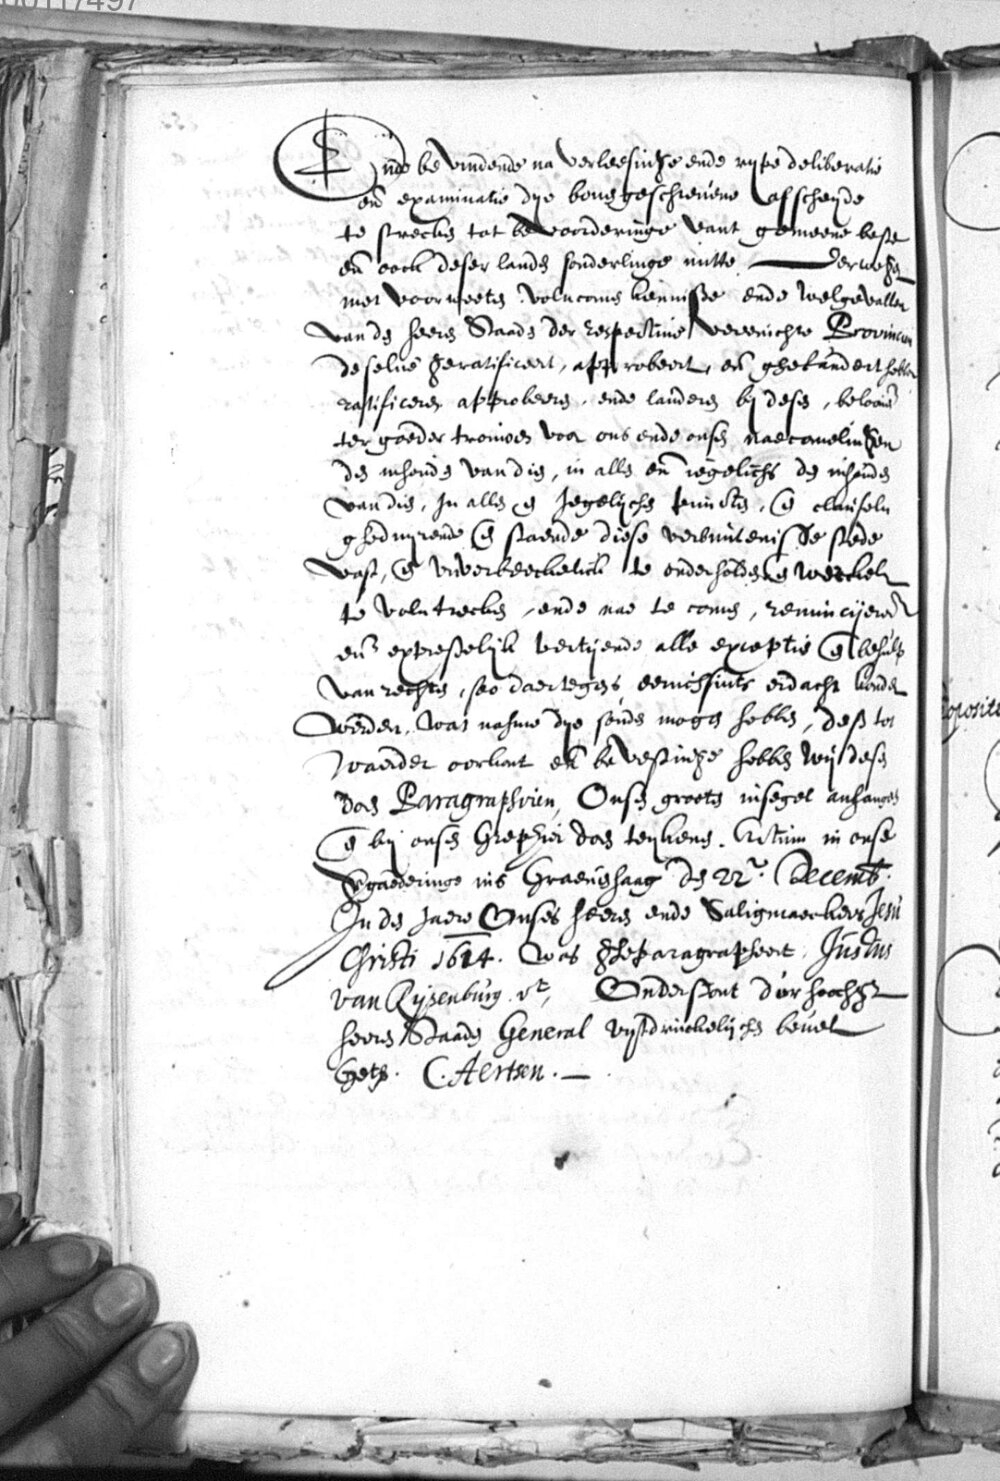 Ende bevindende na verleesinghe ende rype deliberatie
en examinatie dye bovegeschrevene afscheyde
te strecken tot bevoorderinge vant gemeene beste
en oock deser landen sonderlinge nutte
met voorweeten volncomen kennisse ende welgevallen
van de heeren Staaden der respective vereenichte Provincien
deselve geratificeert, approbeert, en hebben
ratificeren approberen, ende bij desen, beloven
ter goeder trouwen voor ons ende onsen naecomelinghen
den inhoude van dien, in allen en iegelichs den inhoude
van dien, In allen en Jegelijcken puincten, en clauseln
ghedurende en staende diese verbintenisse stede
vast, en onverbreeckelick te onderholden en
te volntrecken, ende nae te comen, renuncijeren
en expresselijck vertijende alle exceptie en behulp
van rechten, soo daertegens eenichsints erdacht konde
werden, wat nahme dye souden mogen hebben, dess tot
waerder oorkont en bevestinghe hebben wij desen
doen Paragraphvien, Onsen grooten insegel anhangen
en bij onsen Greffier doen teykenen. Actum in onse
vergaederinge ins Graevenhaag den 22.en Decemb.
In den Jaere Onses heeren ende Saligmaeckers Jesu
Christi 1614. Was gheparagrapheert, Justus
van Rijsenburg vt, Onderstont
heeren Staaden General uytdruckelijcken bevel
Get. C. Aertsen.